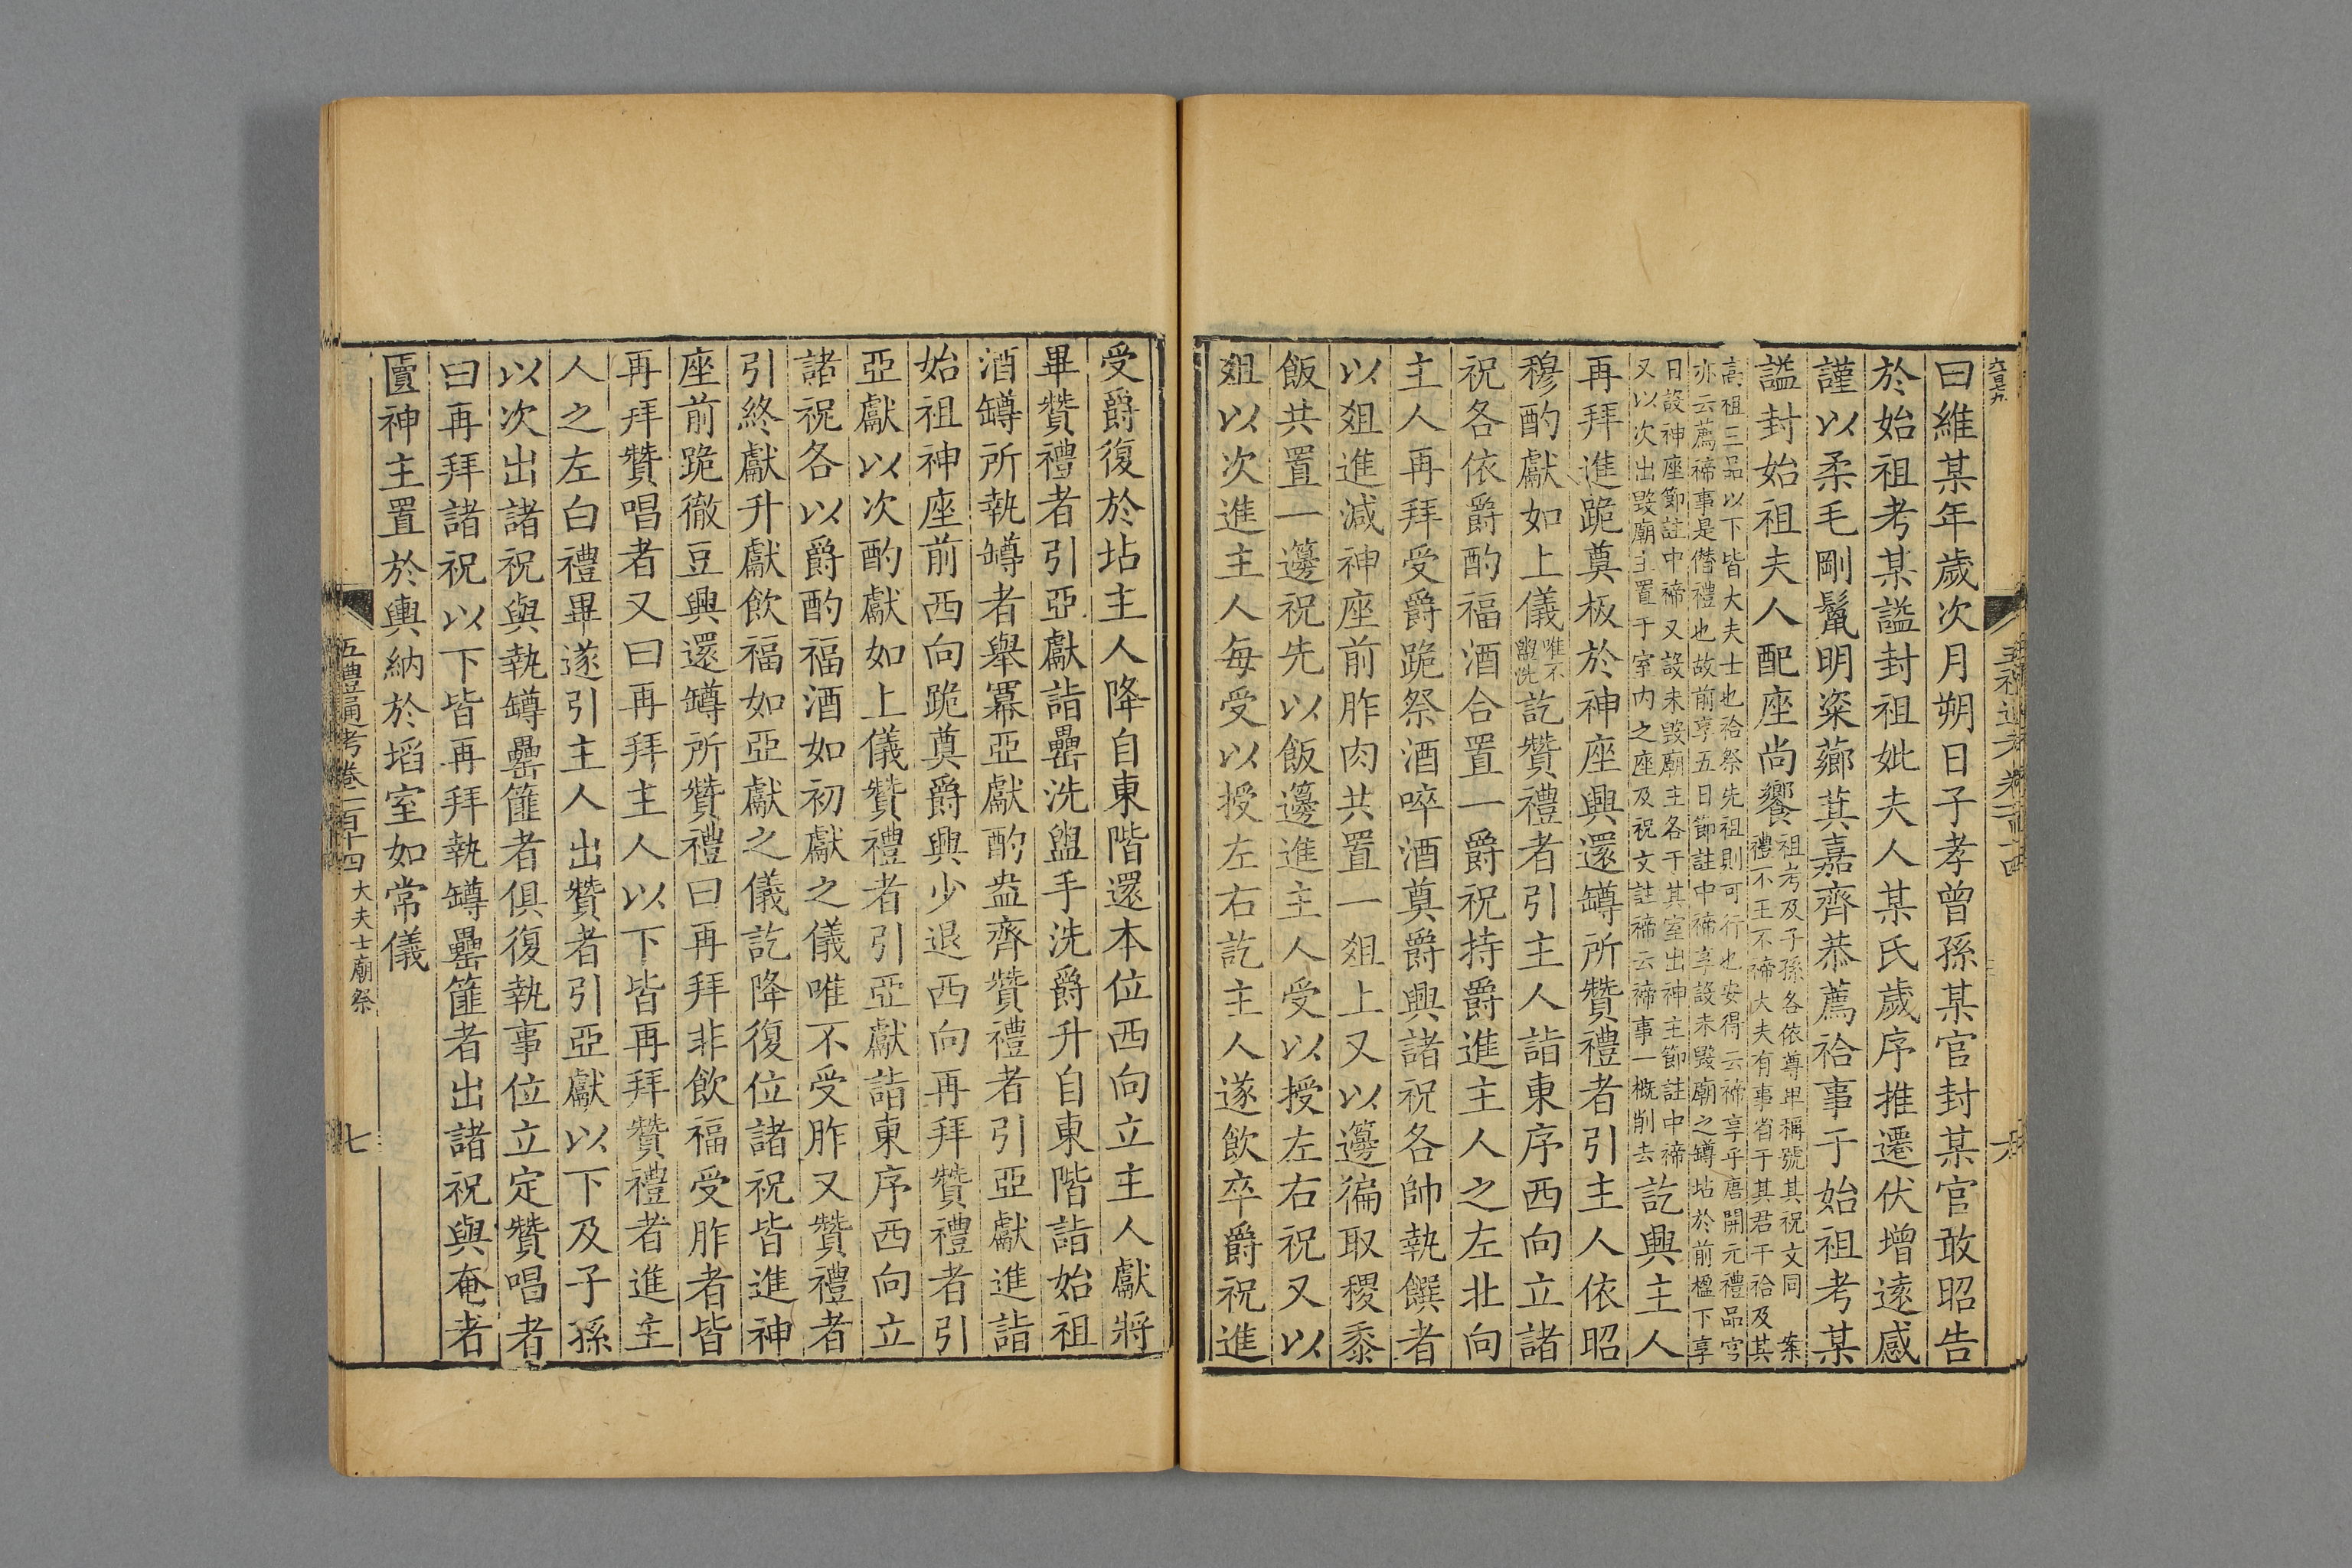 曰維某年歲次月朔日子孝曾孫某官封某官敢昭告
於始祖考某謚封祖妣夫人某氏歲序推遷伏增遠感
謹以柔毛剛鬣明粢薌萁嘉齊恭薦祫事于始祖考某
謚封始祖夫人配座尚饗
祖考及子孫各依尊卑稱號其祝文同 案
禮不王不禘大夫有事省于其君干祫及其
高祖三品以下皆大夫士也祫祭先祖則可行也安得云禘享乎唐開元禮品官
亦云薦禘事是僭禮也故前享五日節註中禘享設未毀廟之罇坫於前楹下享
日設神座節註中禘又設未毀廟主各于其室出神主節註中禘
又以次出毀廟主置于室內之座及祝文註禘云禘事一概削去
訖興主人
再拜進跪奠板於神座興還罇所贊禮者引主人依昭
穆酌獻如上儀
唯不
盥洗
訖贊禮者引主人詣東序西向立諸
祝各依爵酌福酒合置一爵祝持爵進主人之左北向
主人再拜受爵跪祭酒啐酒奠爵興諸祝各帥執饌者
以俎進減神座前胙肉共置一俎上又以籩徧取稷黍
飯共置一籩祝先以飯籩進主人受以授左右祝又以
俎以次進主人每受以授左右訖主人遂飲卒爵祝進
受爵復於坫主人降自東階還本位西向立主人獻將
畢贊禮者引亞獻詣罍洗盥手洗爵升自東階詣始祖
酒罇所執罇者舉冪亞獻酌盎齊贊禮者引亞獻進詣
始祖神座前西向跪奠爵興少退西向再拜贊禮者引
亞獻以次酌獻如上儀贊禮者引亞獻詣東序西向立
諸祝各以爵酌福酒如初獻之儀唯不受胙又贊禮者
引終獻升獻飲福如亞獻之儀訖降復位諸祝皆進神
座前跪徹豆興還罇所贊禮曰再拜非飲福受胙者皆
再拜贊唱者又曰再拜主人以下皆再拜贊禮者進主
人之左白禮畢遂引主人出贊者引亞獻以下及子孫
以次出諸祝與執罇罍篚者俱復執事位立定贊唱者
曰再拜諸祝以下皆再拜執罇罍篚者出諸祝與奄者
匵神主置於輿納於埳室如常儀
五禮通考卷一百十四 大夫士廟祭
七